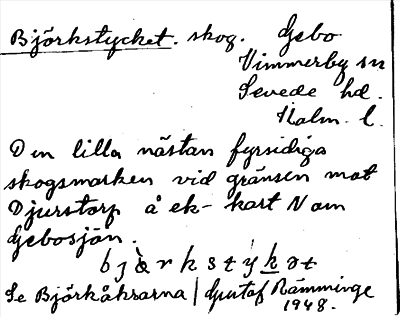 Björkstycket. skog. Gebo
Vimmerby sn
Sevede hd.
Kalm. l.
Den lilla nästan fyrsidiga
skogsmarken vid gränsen mot
Djurstorp å ek-kart N om
Gebosjön.
bjö̀rkstýkət
Se Björkåkrarna / Gustaf Rämminge
1948.